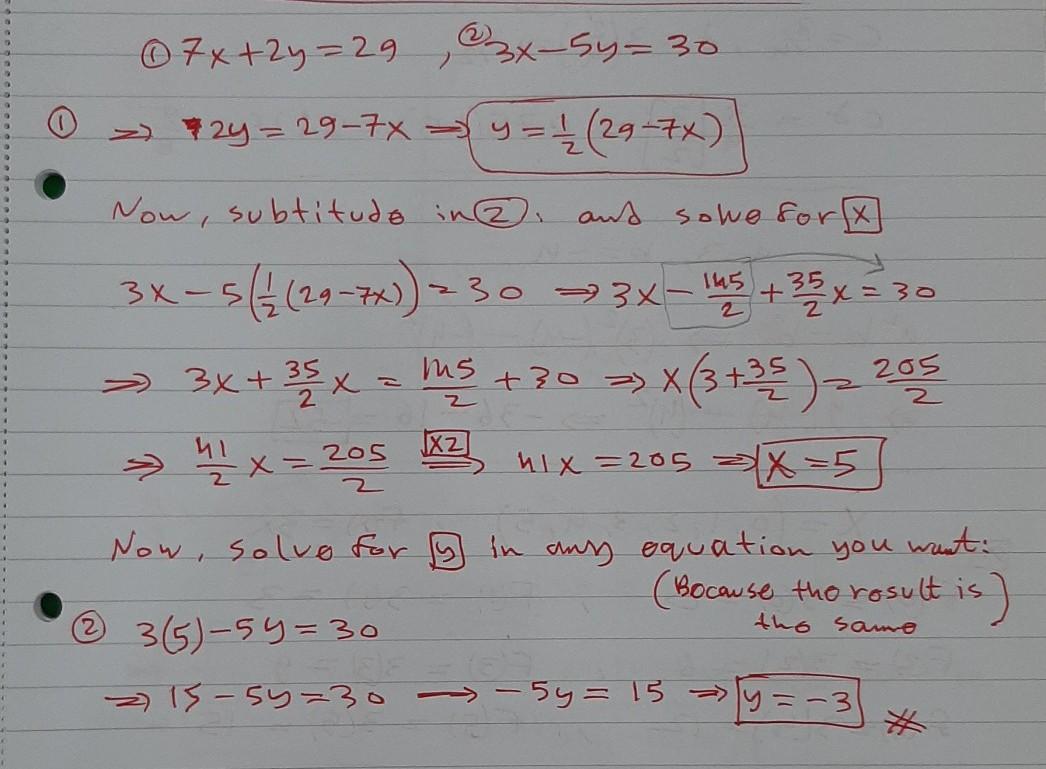 ① 7x+2y=29 , ② 3x-5y=30
① ⇒ 2y=29-7x ⇒ y=1/2(29-7x)
Now, subtitude in ②. and solve for x
3x-5(1/2(29-7x))=30 ⇒ 3x-145/2+35/2x=30
⇒ 3x+35/2x=145/2+30 ⇒ x(3+35/2)=205/2
⇒ 41/2x=205/2 x2⇒ 41x=205 ⇒ x=5
Now, solve for y in any equation you want:
(Because the result is
the same)
② 3(5)-5y=30
⇒ 15-5y=30 → -5y=15 ⇒ y=-3